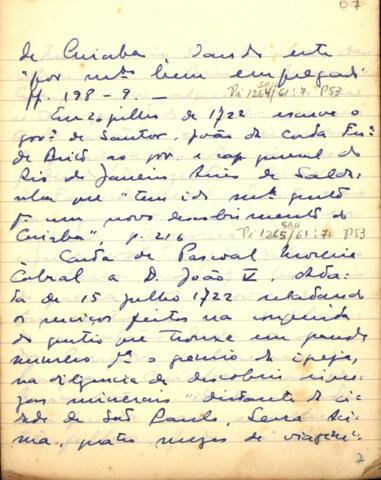 07
de Cuiabá, dando este
"por mto bem empregado"
ff. 198-9. —
Pi 1264/61:7 P53
Em 26 julho de 1722 escreve o
govor de Santos, João da Costa Frra
de Brito ao gov. e cap general do
Rio de Janeiro Aires de Saldª,
que "tem ido mta gente
pª um novo descobrimento do
Cuiabá", p. 216
SBH
Pi 1265/61:7 P53
Carta de Pascoal Moreira
Cabral a D. João V. data-
da de 15 julho 1722 relatando
os serviços feitos na conquista
do gentio que trouxe em grande
numero pª o gremio da igreja,
na diligencia de descobrir
minerais "distante da ci-
dade de São Paulo, Serra Aci-
ma, quatro mezes de viagem".
7